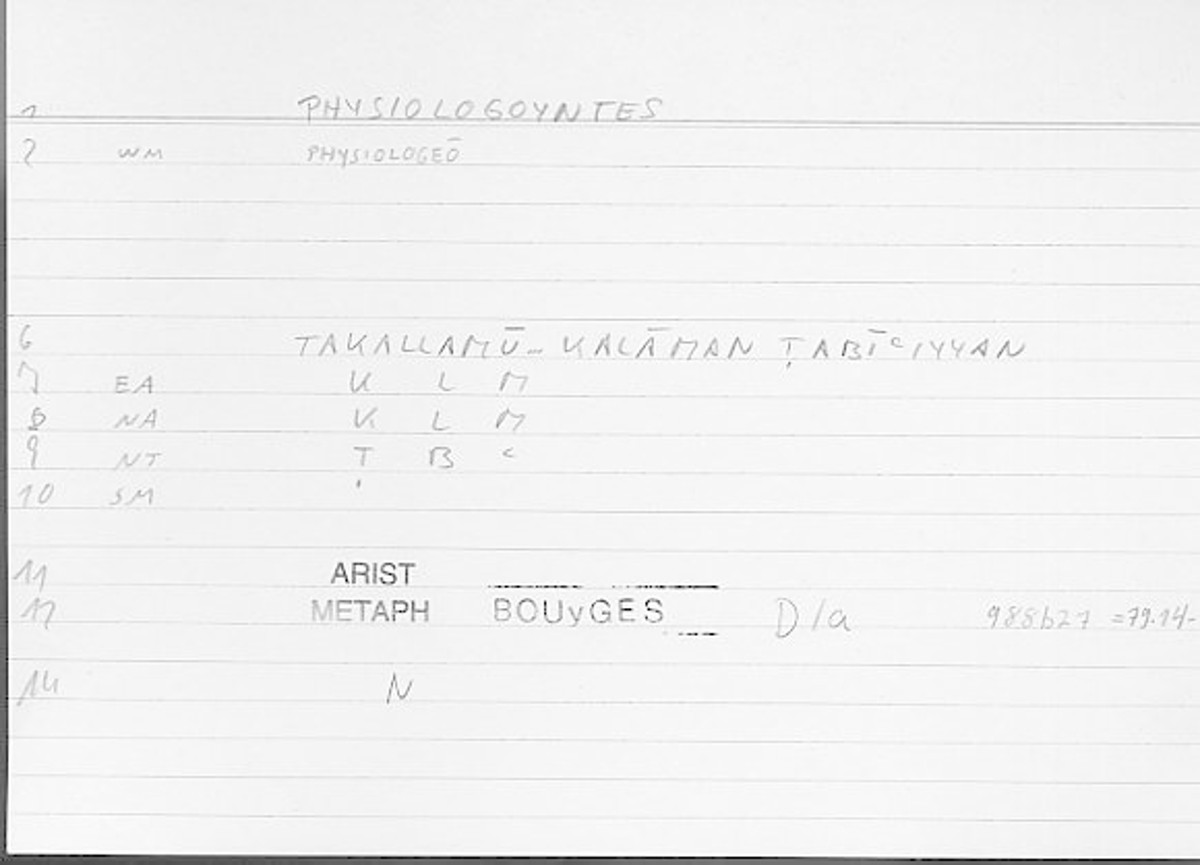 1 PHYSIOLOGOYNTES
2 WM PHYSIOLOGEŌ
6 TAKALLAMŪ- KALĀMAN ṬABĪʿIYYAN
7 EA K L M
8 NA K L M
9 NT Ṭ B ʿ
10 SM
11 ARIST
12 METAPH BOUyGES D/a 988b27 =79.14-
14 N